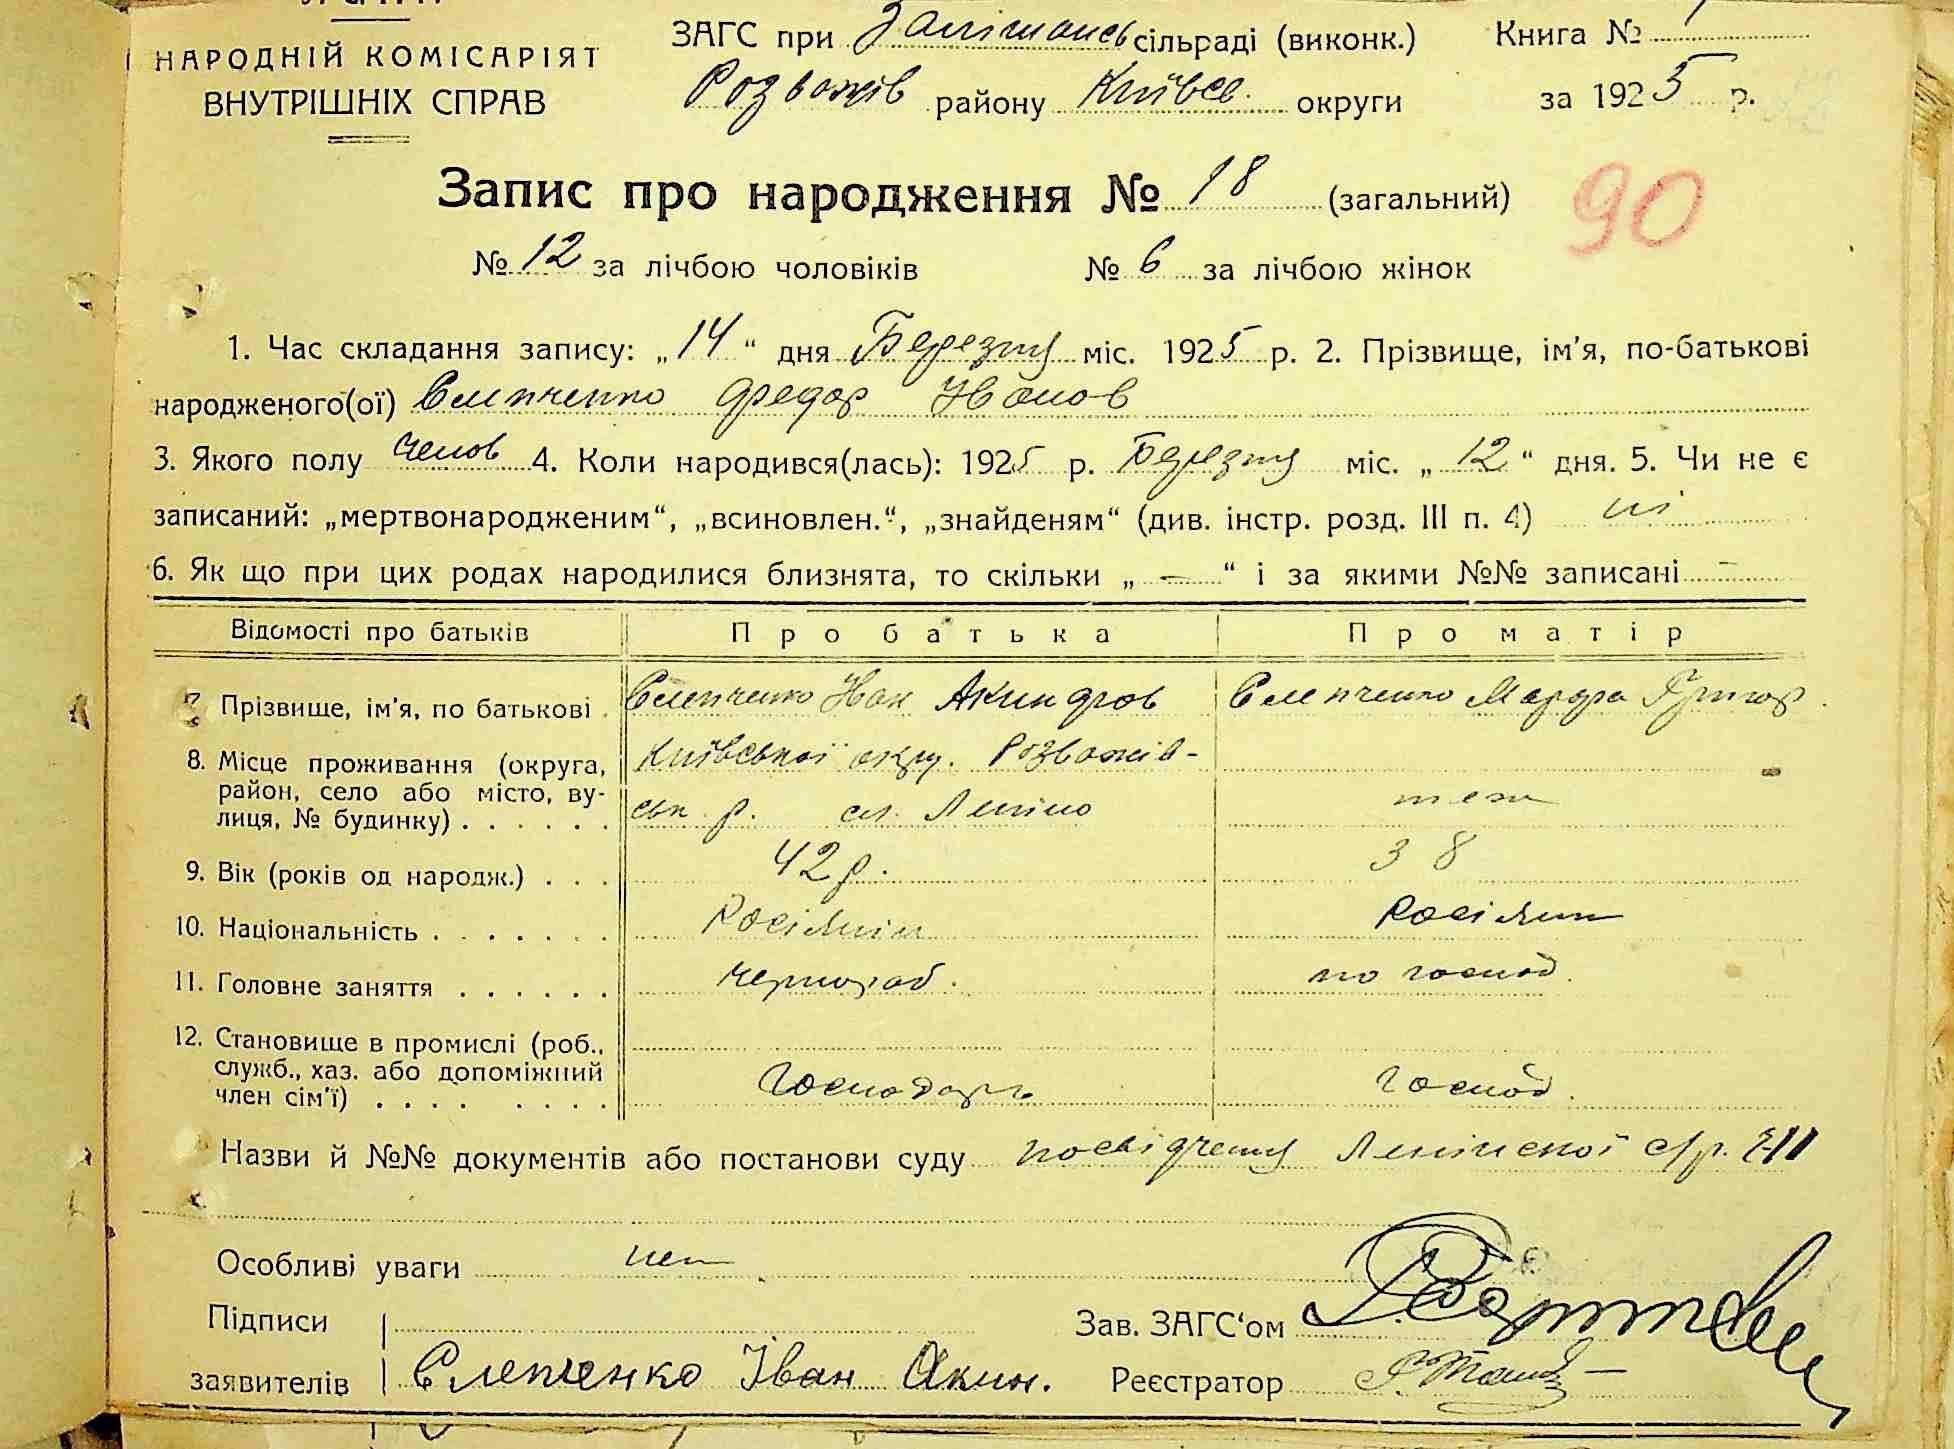 НАРОДНІЙ КОМІСАРІЯТ
ВНУТРІШНІХ СПРАВ
ЗАГС при Залішансь сільраді (виконк.)
Розважів району Київсь. округи
Книга №
за 1925 р.
Запис про народження № 18 (загальний)
90
№ 12 за лічбою чоловіків № 6 за лічбою жінок
1. Час складання запису: „14“ дня Березня міс. 1925 р. 2. Прізвище, ім'я, по-батькові
народженого(ої) Слепченко Федор Иванов
3. Якого полу челов 4. Коли народився(лась): 1925 р. Березня міс. „12“ дня. 5. Чи не є
записаний: „мертвонародженим“, „всиновлен.“, „знайденям“ (див. інстр. розд. III п. 4) ні
6. Як що при цих родах народилися близнята, то скільки „ — “ і за якими №№ записані —
Відомості про батьків Про батька Про матір
7. Прізвище, ім'я, по батькові Слепченко Иван Акиндров Слепченко Марфа Григор
8. Місце проживання (округа, район, село або місто, ву-
лиця, № будинку) Київської окру. Розважів-
ськ р. сл. Леніно теж
9. Вік (років од народж.) 42 р. 38
10. Національність Росіянін Росіянк
11. Головне заняття чернораб. по господ.
12. Становище в промислі (роб.,
служб., хаз. або допоміжний
член сім'ї) Господарь господ.
Назви й №№ документів або постанови суду посвідчення Ленінської с/р.
Особливі уваги нет
Підписи
заявителів Слепченко Іван Акин.
Зав. ЗАГС'ом
Реєстратор